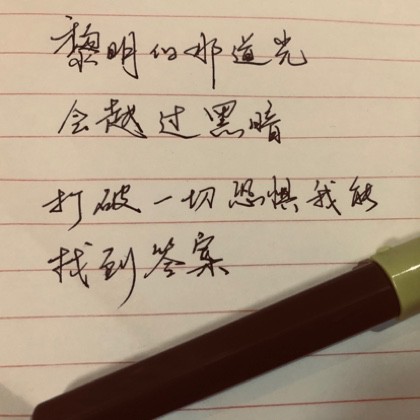 黎明的那道光
会越过黑暗
打破一切恐惧我能
找到答案